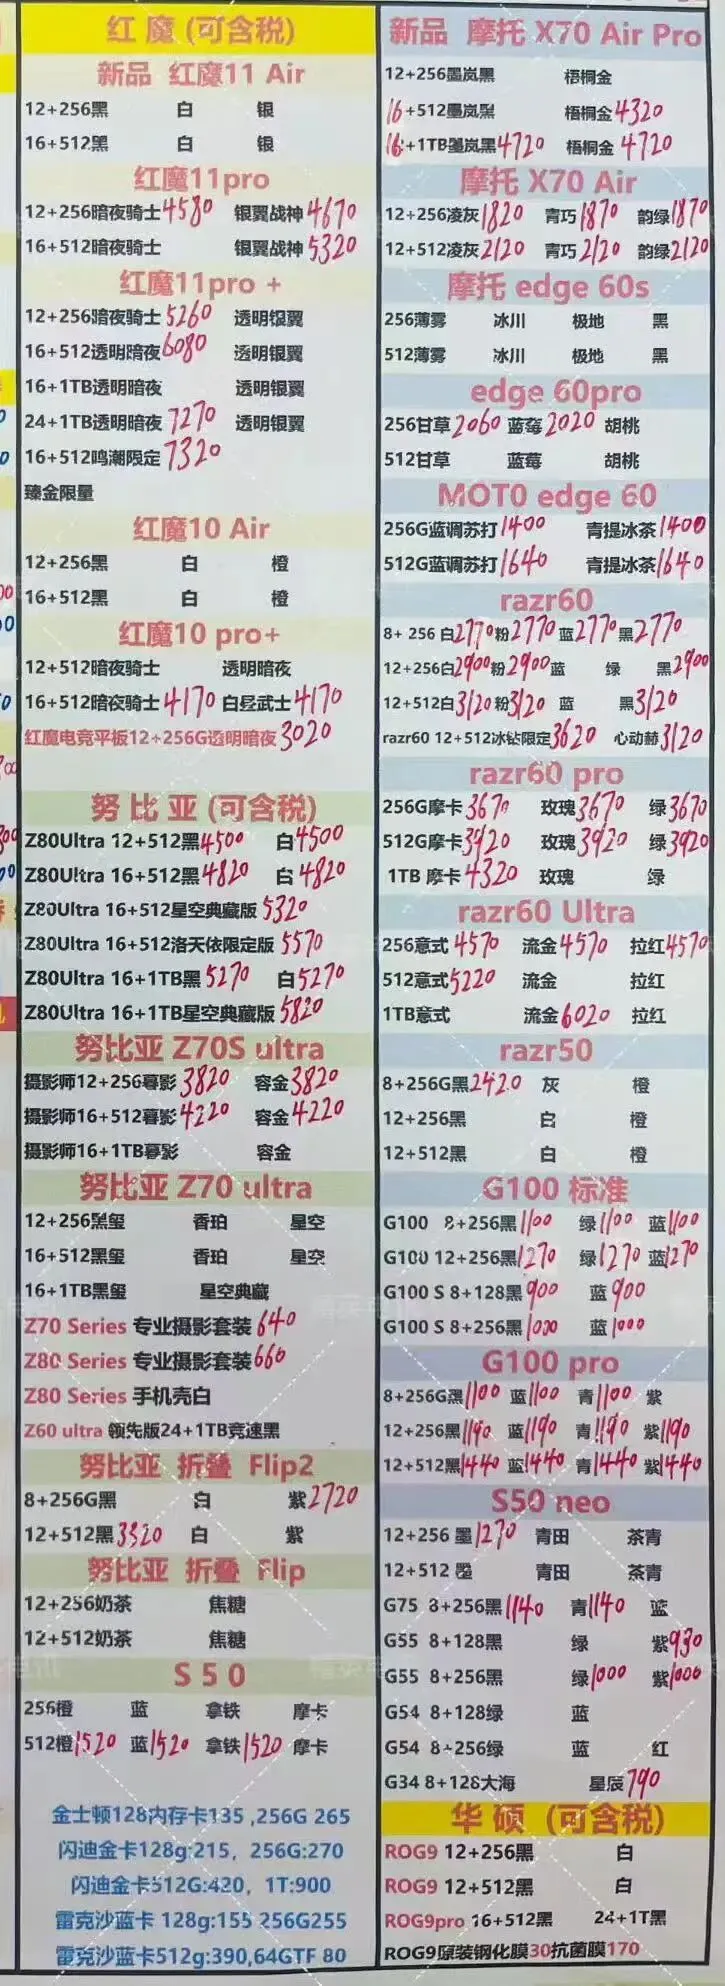 红 魔 (可含税)
新品 红魔11 Air
12+256黑 白 银
16+512黑 白 银
红魔11pro
12+256暗夜骑士4580 银翼战神4670
16+512暗夜骑士 银翼战神5320
红魔11pro +
12+256暗夜骑士5260 透明银翼
16+512透明暗夜6080 透明银翼
16+1TB透明暗夜 透明银翼
24+1TB透明暗夜7270 透明银翼
16+512鸣潮限定7320
臻金限量
红魔10 Air
12+256黑 白 橙
16+512黑 白 橙
红魔10 pro+
12+512暗夜骑士 透明暗夜
16+512暗夜骑士4170 白昼武士4170
红魔电竞平板12+256G透明暗夜3020
努 比 亚 (可含税)
Z80Ultra 12+512黑4500 白4500
Z80Ultra 16+512黑4820 白4820
Z80Ultra 16+512星空典藏版5320
Z80Ultra 16+512洛天依限定版5570
Z80Ultra 16+1TB黑5270 白5270
Z80Ultra 16+1TB星空典藏版5820
努比亚 Z70S ultra
摄影师12+256暮影3820 容金3820
摄影师16+512暮影4220 容金4220
摄影师16+1TB暮影 容金
努比亚 Z70 ultra
12+256黑玺 香珀 星空
16+512黑玺 香珀 星空
16+1TB黑玺 星空典藏
Z70 Series 专业摄影套装640
Z80 Series 专业摄影套装660
Z80 Series 手机壳白
Z60 ultra 领先版24+1TB竞速黑
努比亚 折叠 Flip2
8+256G黑 白 紫2720
12+512黑3320 白 紫
努比亚 折叠 Flip
12+256奶茶 焦糖
12+512奶茶 焦糖
S 5 0
256橙 蓝 拿铁 摩卡
512橙1520 蓝1520 拿铁1520 摩卡
金士顿128内存卡135 ,256G 265
闪迪金卡128g:215, 256G:270
闪迪金卡512G:420, 1T:900
雷克沙蓝卡 128g:155 256G255
雷克沙蓝卡512g:390,64GTF 80
新品 摩托 X70 Air Pro
12+256墨岚黑 梧桐金
16+512墨岚黑 梧桐金4320
16+1TB墨岚黑4720 梧桐金 4720
摩托 X70 Air
12+256凌灰1820 青巧1870 韵绿1870
12+512凌灰2120 青巧2120 韵绿2120
摩托 edge 60s
256薄雾 冰川 极地 黑
512薄雾 冰川 极地 黑
edge 60pro
256甘草2060 蓝莓2020 胡桃
512甘草 蓝莓 胡桃
MOTO edge 60
256G蓝调苏打1400 青提冰茶1400
512G蓝调苏打1640 青提冰茶1640
razr60
8+ 256 白2770粉2770 蓝2770黑2770
12+256白2900粉2900蓝 绿 黑2900
12+512白3120粉3120 蓝 黑3120
razr60 12+512冰钻限定3620 心动赫3120
razr60 pro
256G摩卡3670 玫瑰3670 绿3670
512G摩卡3920 玫瑰3920 绿3920
1TB 摩卡4320 玫瑰 绿
razr60 Ultra
256意式4570 流金4570 拉红4570
512意式5220 流金 拉红
1TB意式 流金6020 拉红
razr50
8+256G黑2420 灰 橙
12+256黑 白 橙
12+512黑 白 橙
G100 标准
G100 8+256黑1100 绿1100 蓝1100
G100 12+256黑1270 绿1270 蓝1270
G100 S 8+128黑900 蓝900
G100 S 8+256黑1000 蓝1000
G100 pro
8+256G黑1100 蓝1100 青1100 紫
12+256黑1190 蓝1190 青1190 紫1190
12+512黑1440 蓝1440 青1440 紫1440
S50 neo
12+256 墨1270 青田 茶青
12+512 墨 青田 茶青
G75 8+256黑1140 青1140 蓝
G55 8+128黑 绿 紫930
G55 8+256黑 绿1000 紫1000
G54 8+128绿 蓝
G54 8+256绿 蓝 红
G34 8+128大海 星辰790
华 硕 (可含税)
ROG9 12+256黑 白
ROG9 12+512黑 白
ROG9pro 16+512黑 24+1T黑
ROG9原装钢化膜30抗菌膜170